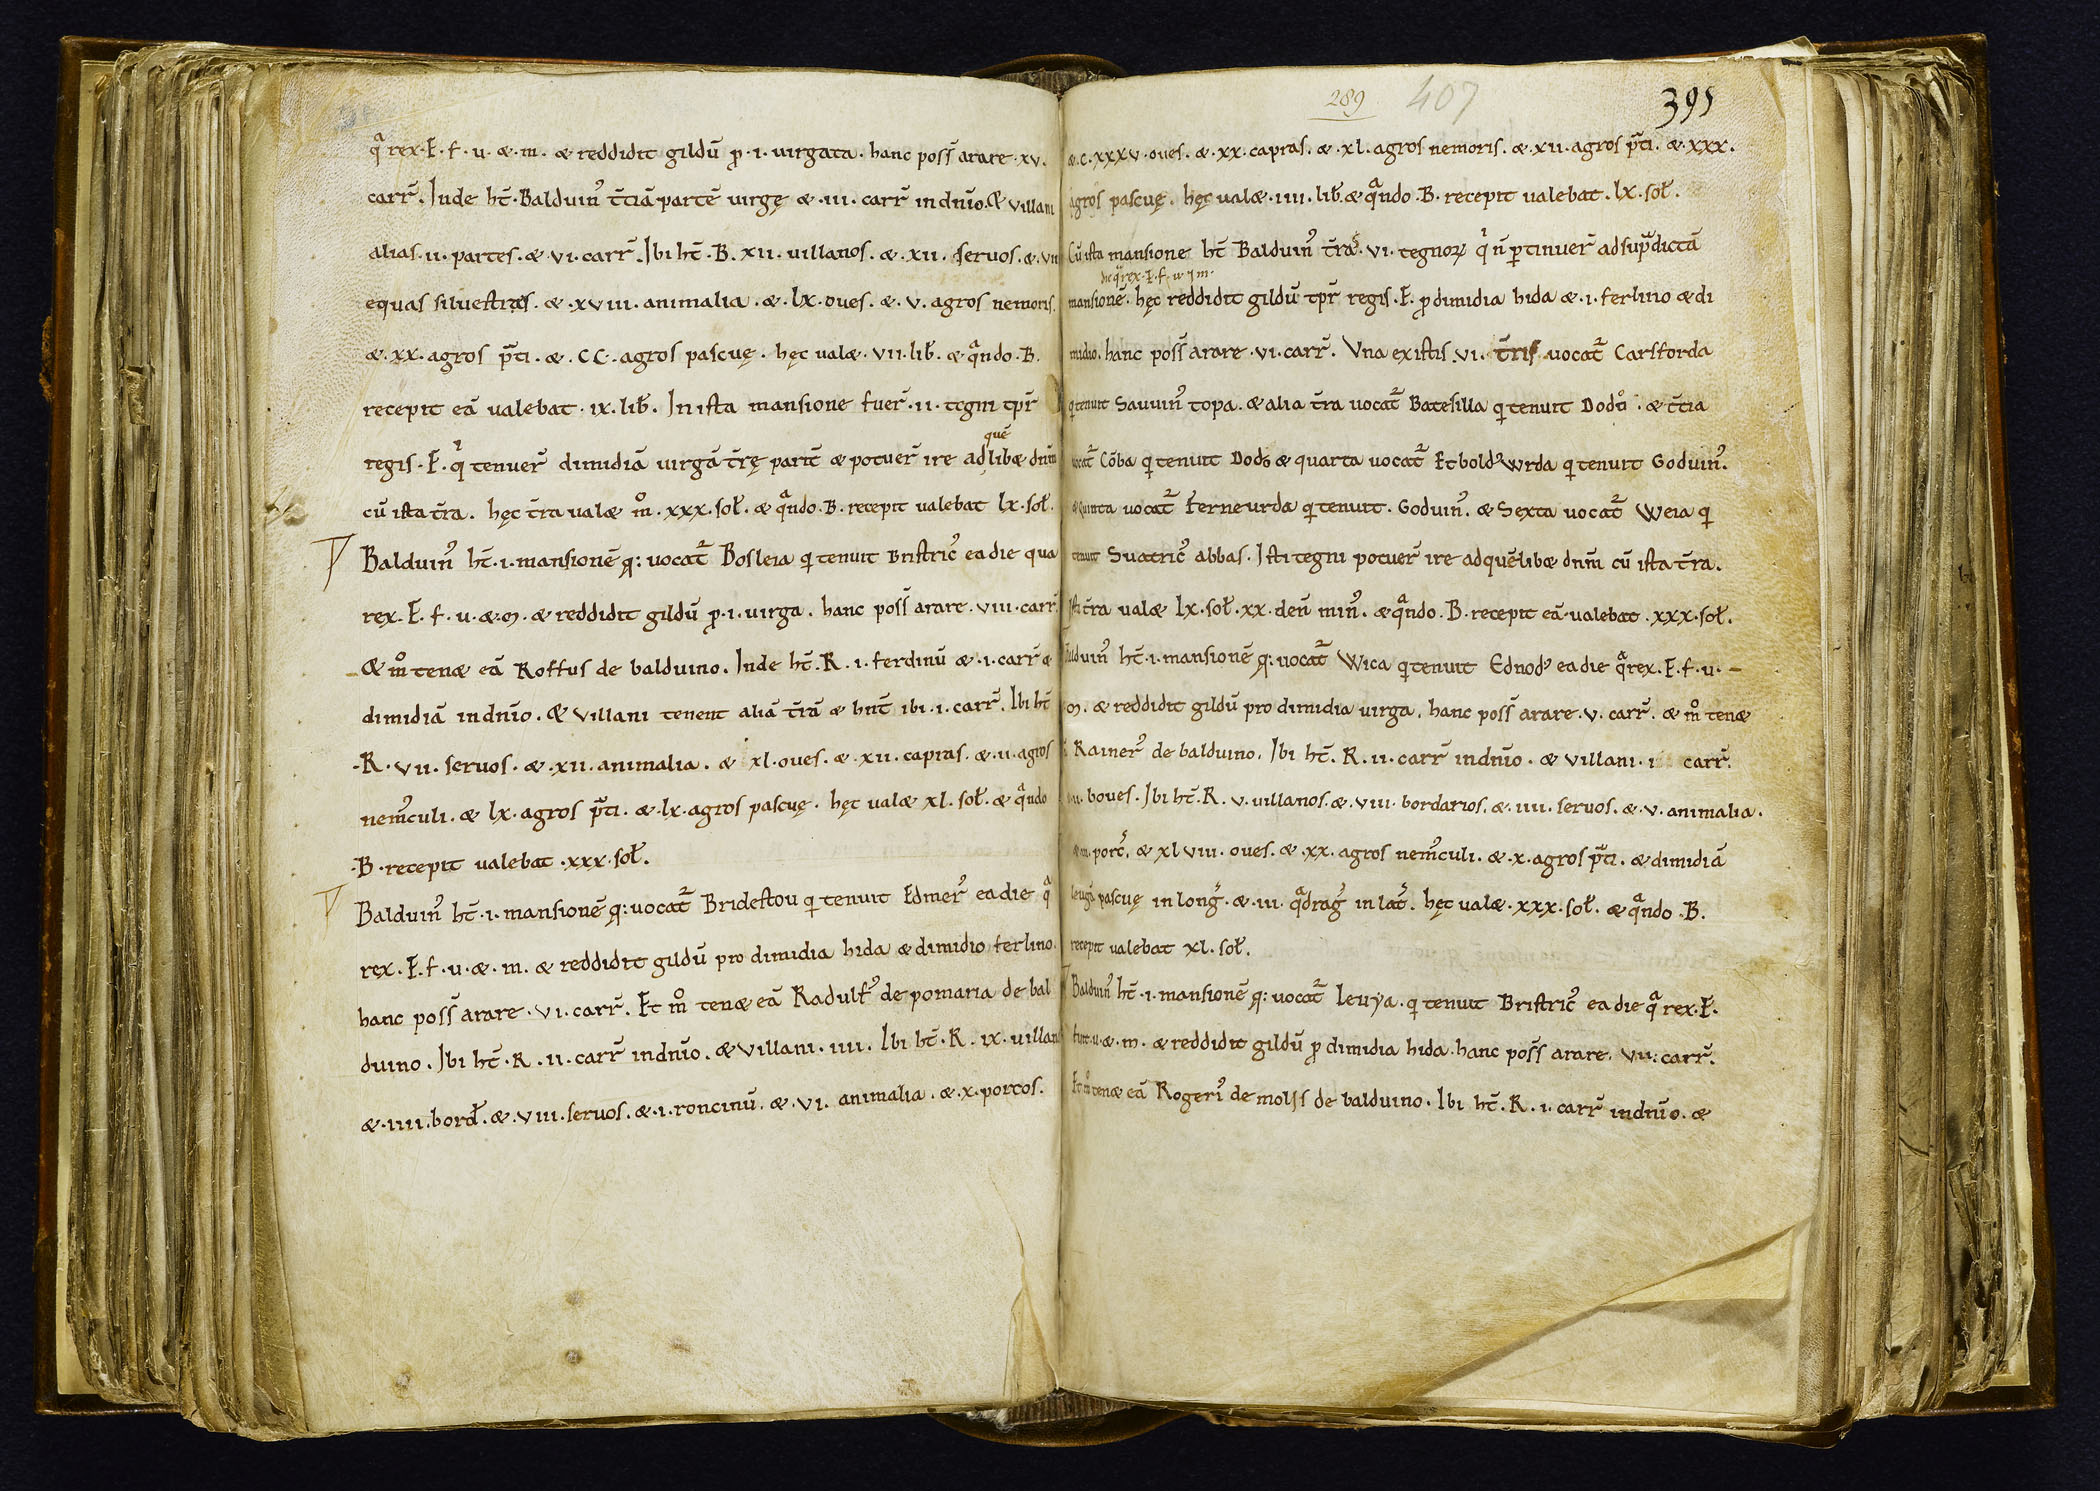 q̄ rex·E·f·u·&·m· & reddidit gildū ꝓ·i·uirgata· hanc poss̄ arare·xv·
carr̄. Inde ht̄·Balduin᾽ t̄ciā partē uirgę &·iii·carr̄ indn̄io·& uillani
alias·ii·partes·&·vi·carr̄. Ibi ht̄·B·xii·uillanos·&·xii·seruos·&·vii
equas siluestras·&·xviii·animalia·&·lx·oues·&·v·agros nemoris.
&·xx·agros p̄ti·&·CC·agros pascuę· hęc ual&·vii·lib̄·& qn̄do·B·
recepit eā ualebat·ix·lib̄. In ista mansione fuer̄·ii·tegni tp̄r
regis·E·q' tenuer̄ dimidiā uirgā t̄rę parit̄ & potuer̄ ire ad quē lib& dn̄m
cū ista t̄ra. hęc t̄ra ual& m̊·xxx·sol̄·& qn̄do·B·recepit ualebat lx·sol̄.
Balduin᾽ ht̄·i·mansionē q: uocat̄ Bosleia q tenuit Bristric᾽ ea die qua
rex·E·f·u·&·m·& reddidit gildū ꝓ·i·uirga· hanc poss̄ arare·viii·carr̄
& m̊ ten& eā Roffus de balduino. Inde ht̄·R·i·ferdinū &·i·carr̄ &
dimidiā indn̄io. & uillani tenent aliā t̄rā & hn̄t ibi·i·carr̄. Ibi ht̄
·R·vii·seruos·&·xii·animalia·& xl·oues·&·xii·capras·&·ii·agros
nem̄culi·& lx·agros p̄ti·&·lx·agros pascuę· hęc ual& xl·sol̄·& qn̄do
·B·recepit ualebat·xxx·sol̄.
Balduin᾽ ht̄·i·mansionē q: uocat̄ Bridestou q tenuit Edmer᾽ ea die q̄
rex·E·f·u·&·m·& reddidit gildū pro dimidia hida & dimidio ferlino·
hanc poss̄ arare·vi·carr̄. Et m̊ ten& eā Radulf᾽ de pomaria de bal
duino. Ibi ht̄·R·ii·carr̄ indn̄io·& uillani·iiii· Ibi ht̄·R·ix·uillan
&·iiii·bord̄·&·viii·seruos·&·i·roncinū·&·vi·animalia·&·x·porcos·
289 407 395
&·c·xxxv·oues·&·xx·capras·&·xl·agros nemoris·&·xii·agros p̄ti·&·xxx·
agros pascuę· hęc ual&·iiii·lib̄·& qn̄do·B·recepit ualebat·lx·sol̄.
Cū ista mansione ht̄ Balduin᾽ t̄ras·vi·tegnoꝝ q' n̄ ꝑtinuer̄ ad sup̄dictā
die q̄ rex·E·f·u·⁊ m·
mansionē· hęc reddidit gildū tp̄r regis·E· ꝓ dimidia hida &·i·ferlino & di
midio· hanc poss̄ arare·vi·carr̄. Vna ex istis·vi·t̄ris uocat̄ Carsforda
q tenuit Sauuin᾽ topa·& alia t̄ra uocat̄ Batesilla q tenuit Dodo·& t̄cia
uocat̄ Cōba q tenuit Dodo & quarta uocat̄ Etboldus Wrda q tenuit Goduin᾽.
& Quinta uocat̄ Ferneurda q tenuit·Goduin᾽·& Sexta uocat̄ Weia q
tenuit Suatric᾽ abbas. Isti tegni potuer̄ ire ad quēlib& dn̄m cū ista t̄ra.
Ista t̄ra ual& lx·sol̄·xx·den̄ min᾽·& qn̄do·B·recepit eā ualebat·xxx·sol̄.
Balduin᾽ ht̄·i·mansionē q: uocat̄ Wica q tenuit Ednod᾽ ea die q̄ rex·E·f·u·
m·& reddidit gildū pro dimidia uirga· hanc poss̄ arare·v·carr̄·& m̊ ten&
Rainer᾽ de balduino. Ibi ht̄·R·ii·carr̄ indn̄io·& uillani·i carr̄.
boues. Ibi ht̄·R·v·uillanos·&·viii·bordarios·&·iiii·seruos·&·v·animalia.
&·iii·porc̄·& xlviii·oues·&·xx·agros nem̄culi·&·x·agros p̄ti·& dimidiā
leugā pascuę in lonḡ·&·iii·q̄draḡ in lat̄· hęc ual&·xxx·sol̄·& qn̄do·B·
recepit ualebat xl·sol̄.
Balduin᾽ ht̄·i·mansionē q: uocat̄ leuya·q tenuit Bristric᾽ ea die q̄ rex·E·
fuit·u·&·m·& reddidit gildū ꝓ dimidia hida· hanc poss̄ arare·vii·carr̄.
Et m̊ ten& eā Rogeri᾽ de moljs de balduino. Ibi ht̄·R·i·carr̄ indn̄io·&